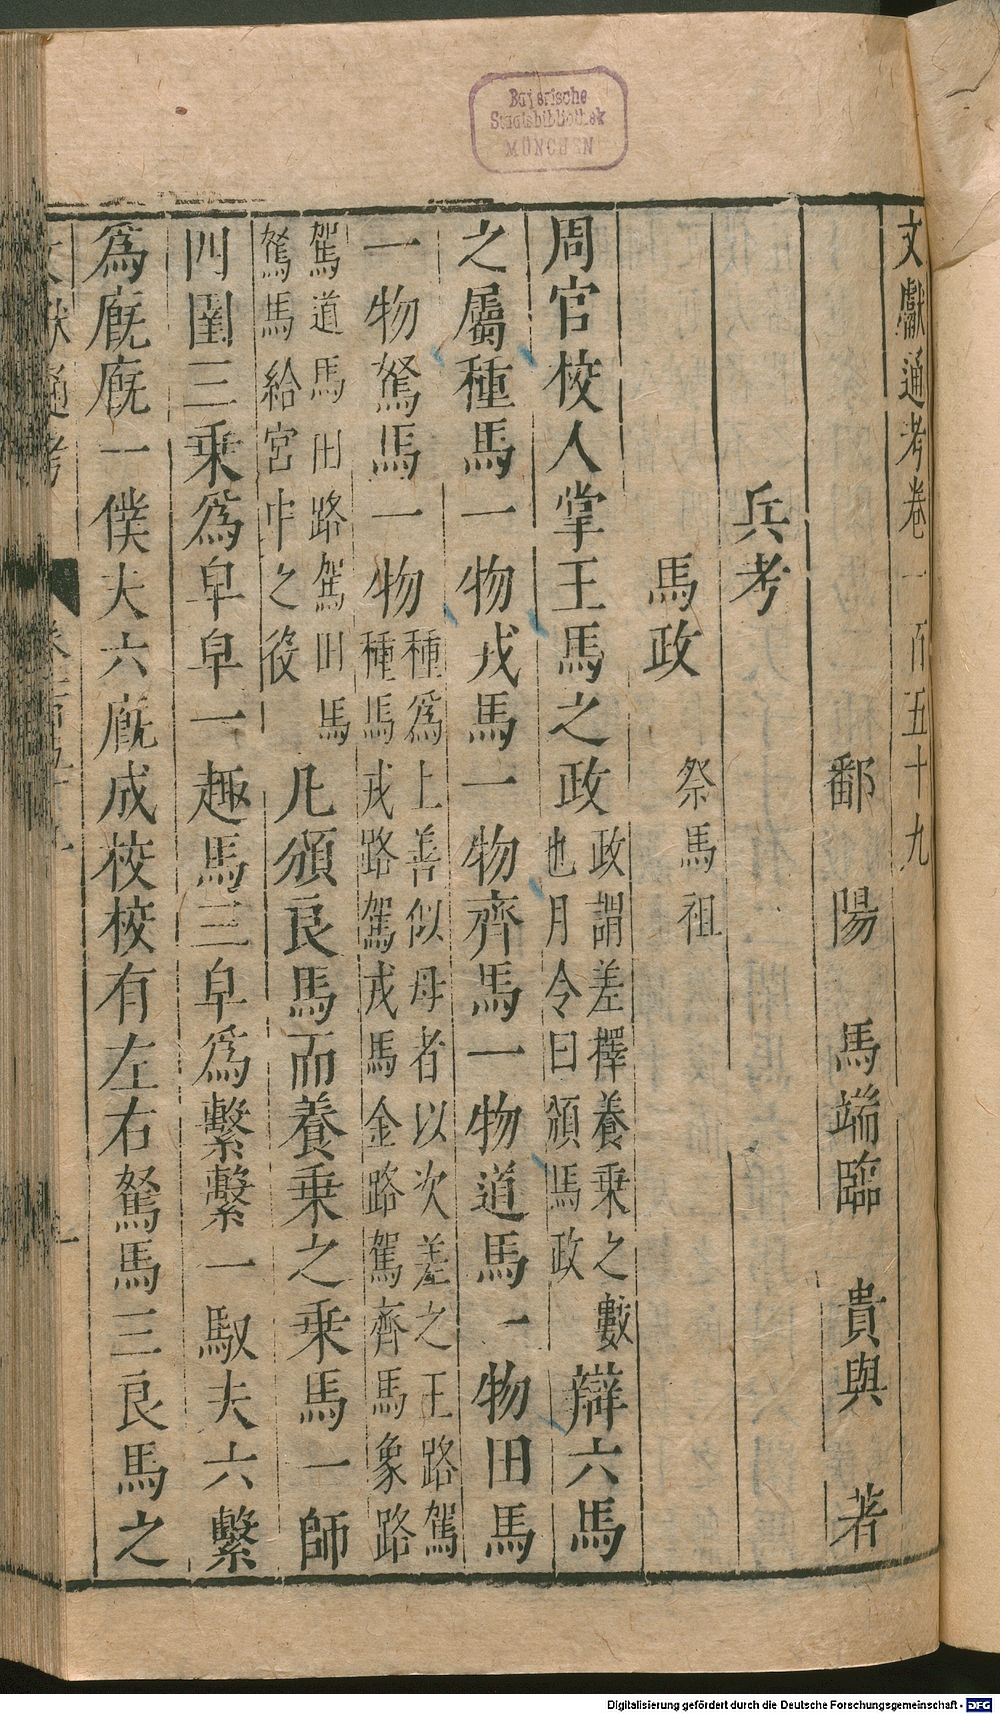 Bayerische
Staatsbibliothek
MÜNCHEN
文獻通考卷一百五十九
鄱陽馬端臨貴與著
兵考
馬政 祭馬祖
周官校人掌王馬之政政謂差擇養乗之數也月令曰頒馬政辯六馬
之屬種馬一物戎馬一物齊馬一物道馬一物田馬
一物駑馬一物種爲上善似母者以次差之王路駕種馬戎路駕戎馬金路駕齊馬象路
駕道馬田路駕田馬駑馬給宮中之役凡頒良馬而養乗之乗馬一師
四圉三乗爲皁皁一趣馬三皁爲繫繫一馭夫六繫
爲廐廐一僕夫六廐成校校有左右駑馬三良馬之
Digitalisierung gefördert durch die Deutsche Forschungsgemeinschaft - DFG